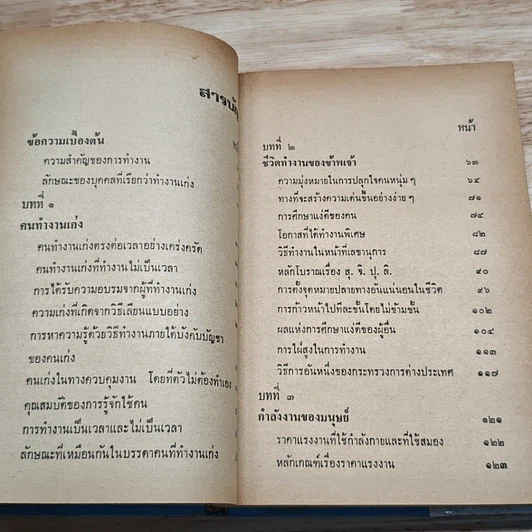 สารบัญ
ข้อความเบื้องต้น
ความสำคัญของการทำงาน
ลักษณะของบุคคลที่เรียกว่าทำงานเก่ง
บทที่ ๑
คนทำงานเก่ง
คนทำงานเก่งตรงต่อเวลาอย่างเคร่งครัด
คนทำงานเก่งที่ทำงานไม่เป็นเวลา
การได้รับความอบรมจากผู้ที่ทำงานเก่ง
ความเก่งที่เกิดจากวิธีเลียนแบบอย่าง
การหาความรู้ด้วยวิธีทำงานภายใต้บังคับบัญชา
ของคนเก่ง
คนเก่งในทางควบคุมงาน โดยที่ตัวไม่ต้องทำเอง
คุณสมบัติของการรู้จักใช้คน
การทำงานเป็นเวลาและไม่เป็นเวลา
ลักษณะที่เหมือนกันในบรรดาคนที่ทำงานเก่ง
หน้า
บทที่ ๒
ชีวิตทำงานของข้าพเจ้า ๖๓
ความมุ่งหมายในการปลุกใจคนหนุ่ม ๆ ๖๔
ทางที่จะสร้างความเด่นขึ้นอย่างง่าย ๆ ๗๑
การศึกษาแง่ดีของคน ๗๔
โอกาสที่ได้ทำงานพิเศษ ๘๒
วิธีทำงานในหน้าที่เลขานุการ ๘๗
หลักโบราณเรื่อง สุ. จิ. ปุ. ลิ. ๙๐
การตั้งจุดหมายปลายทางอันแน่นอนในชีวิต ๙๖
การก้าวหน้าไปทีละขั้นโดยไม่ข้ามขั้น ๑๐๒
ผลแห่งการศึกษาแง่ดีของผู้อื่น ๑๐๔
การใฝ่สูงในการทำงาน ๑๑๓
วิธีการอันหนึ่งของกระทรวงการต่างประเทศ ๑๑๗
บทที่ ๓
กำลังงานของมนุษย์ ๑๒๑
ราคาแรงงานที่ใช้กำลังกายและที่ใช้สมอง ๑๒๒
หลักเกณฑ์เรื่องราคาแรงงาน ๑๒๓